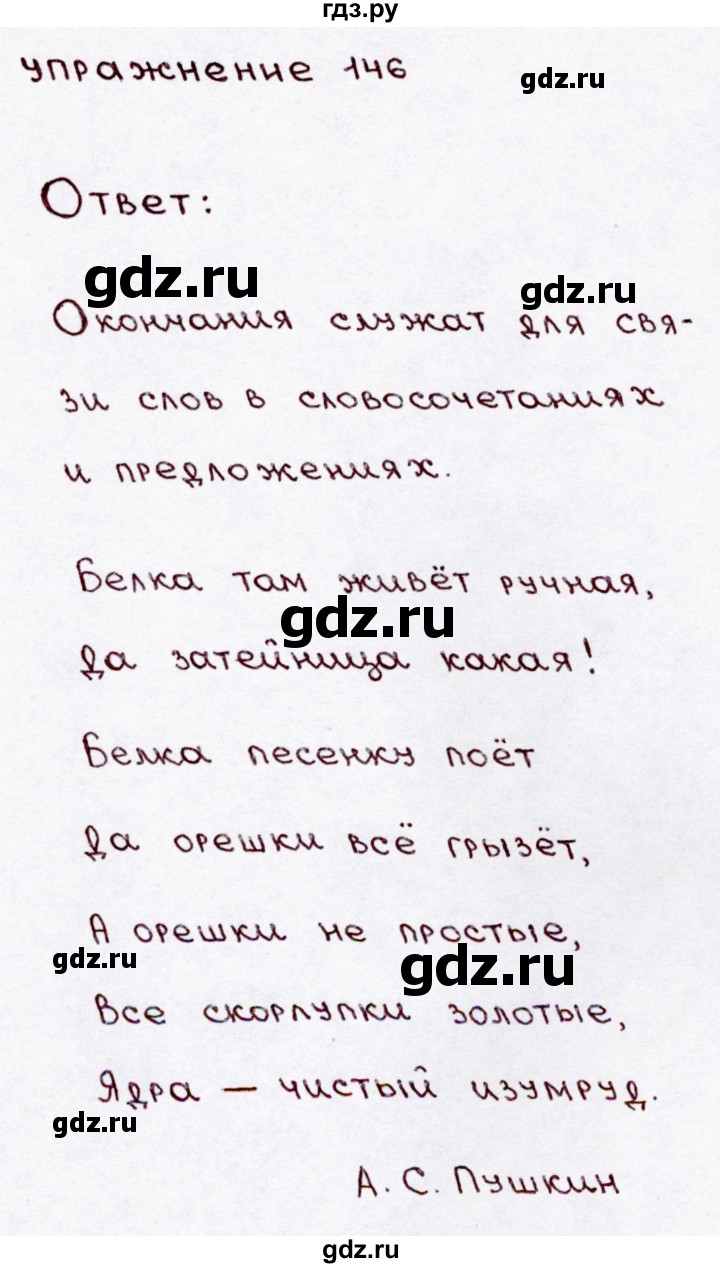 гдз.ру
упражнение 146
gdz.ru
Ответ:
gdz.ru
gdz.ru
Окончания служат для свя-
зи слов в словосочетаниях
и предложениях.
Белка там живёт ручная,
gdz.ru
Да затейница какая!
Белка песенку поёт
Да орешки всё грызёт,
А орешки не простые,
gdz.ru
gdz.ru
Все скорлупки золотые,
Ядра — чистый изумруд.
gdz.ru
А. С. Пушкин
gdz.ru